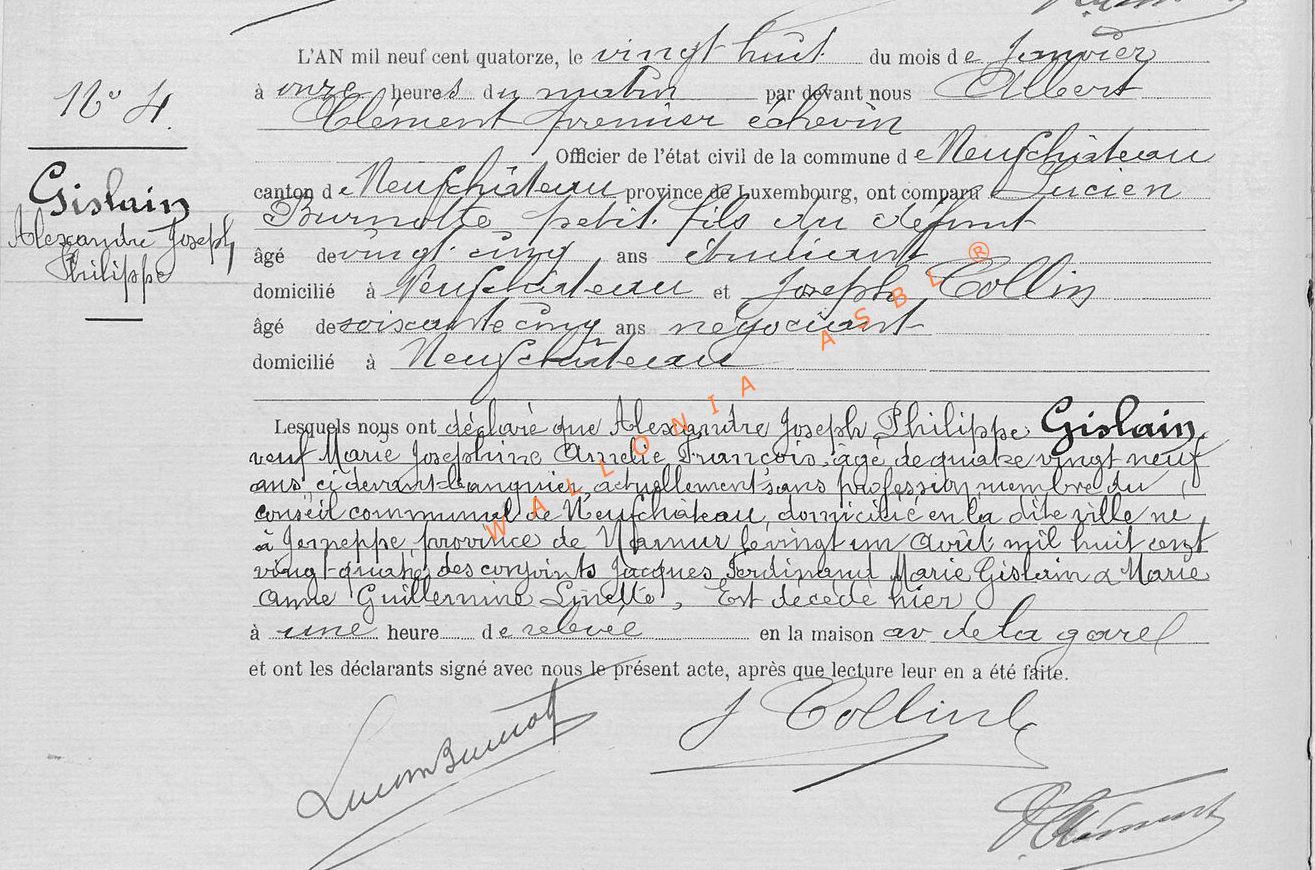 L'AN mil neuf cent quatorze, le vingt huit du mois de Janvier
N° 4.
à onze heures du matin par devant nous Albert
Clément premier échevin
Officier de l'état civil de la commune de Neufchâteau
canton de Neufchâteau province de Luxembourg, ont comparu Lucien
Gislain
Alexandre Joseph
Philippe
Burnotte petit-fils du défunt
âgé de vingt cinq ans étudiant
domicilié à Neufchâteau et Joseph Collin
âgé de soixante cinq ans négociant
domicilié à Neufchâteau
Lesquels nous ont déclaré que Alexandre Joseph Philippe Gislain,
veuf Marie Josephine Amelie François, âgé de quatre vingt neuf
ans, ci devant banquier, actuellement sans profession, membre du
conseil communal de Neufchâteau, domicilié en la dite ville né
à Jemeppe, province de Namur le vingt un Avril mil huit cent
vingt-quatre, des conjoints Jacques Ferdinand Marie Gislain & Marie
Anne Guillermine Linette, Est décédé hier
à une heure de relevée en la maison av de la gare
et ont les déclarants signé avec nous le présent acte, après que lecture leur en a été faite.
Lucien Burnotte
J Collin
A. Clément
WALLONIA ASBL ®